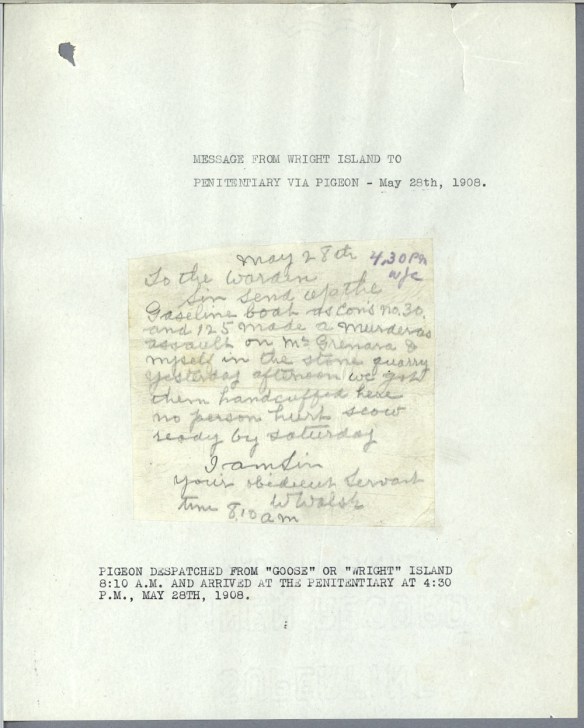 MESSAGE FROM WRIGHT ISLAND TO
PENITENTIARY VIA PIGEON - May 28th, 1908.
May 28th 4,30 PM
WJC
To the Warden
Sir Send up the
Gasoline boat as Con's No. 30.
and 125 made a Murderous
assault on Mr &
myself in the stone quarry
yesterday afternoon we got
them handcuffed here
no person hurt scow
ready by Saturday
I am Sir
your obedient Servant
W Walsh
time 8,10 am
PIGEON DESPATCHED FROM "GOOSE" OR "WRIGHT" ISLAND
8:10 A.M. AND ARRIVED AT THE PENITENTIARY AT 4:30
P.M., MAY 28TH, 1908.